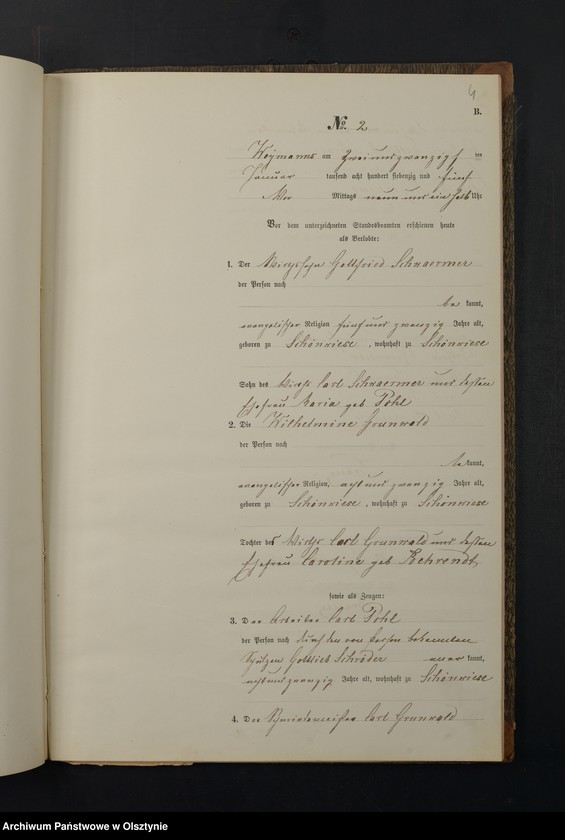 4
B.
No. 2
am zweiundzwanzigsten
Januar tausend acht hundert siebenzig und fünf
Vor Mittags neun und ein halb Uhr
Vor dem unterzeichneten Standesbeamten erschienen heute
als Verlobte:
1. Der Wirthssohn Gottfried Schwaermer
der Person nach
be kannt,
evangelischer Religion fünf und zwanzig Jahre alt,
geboren zu Schönwiese, wohnhaft zu Schönwiese
Sohn des Wirths Carl Schwaermer und dessen
Ehefrau Maria geb Pohl
2. Die Wilhelmine Grunwald
der Person nach
be kannt,
evangelischer Religion, acht und zwanzig Jahre alt,
geboren zu Schönwiese, wohnhaft zu Schönwiese
Tochter des Wirths Carl Grunwald und dessen
Ehefrau Caroline geb Behrendt,
sowie als Zeugen:
3. Der Arbeiter Carl Pohl
der Person nach durch den von Person bekannten
Gottlieb Schröder aner kannt,
achtundzwanzig Jahre alt, wohnhaft zu Schönwiese
4. Der Carl Grunwald
Archiwum Państwowe w Olsztynie